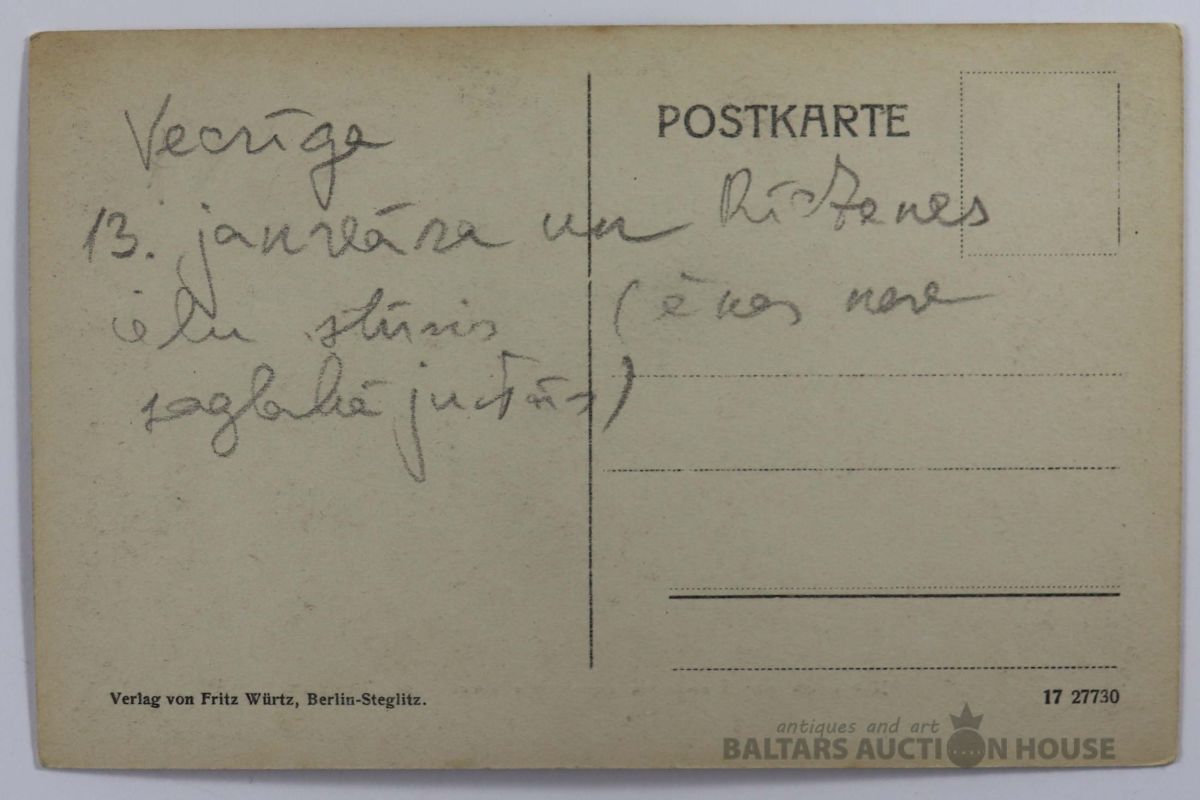 POSTKARTE
Vecrīga
13. janvāra un Rīdzenes
ielu stūris (ēkas nav
saglabājušās)
Verlag von Fritz Würtz, Berlin-Steglitz.
17 27730
antiques and art
BALTARS AUCTION HOUSE